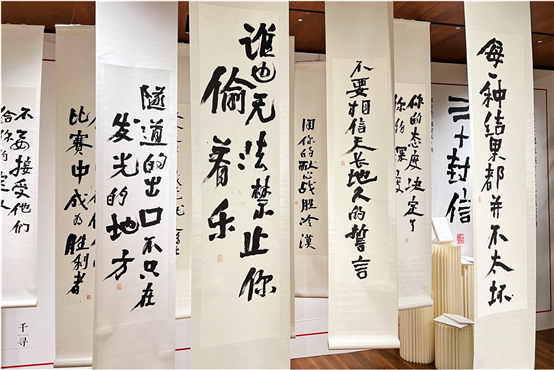 不要接受他们
给你的
千寻
比赛中成为胜利者
隧道的出口不只在
发光的地方
谁也无法禁止你
偷着乐
用你的耐心战胜冷漠
不要相信天长地久的誓言
你的态度决定了
你的深度
二十封信
每一种结果都并不太坏